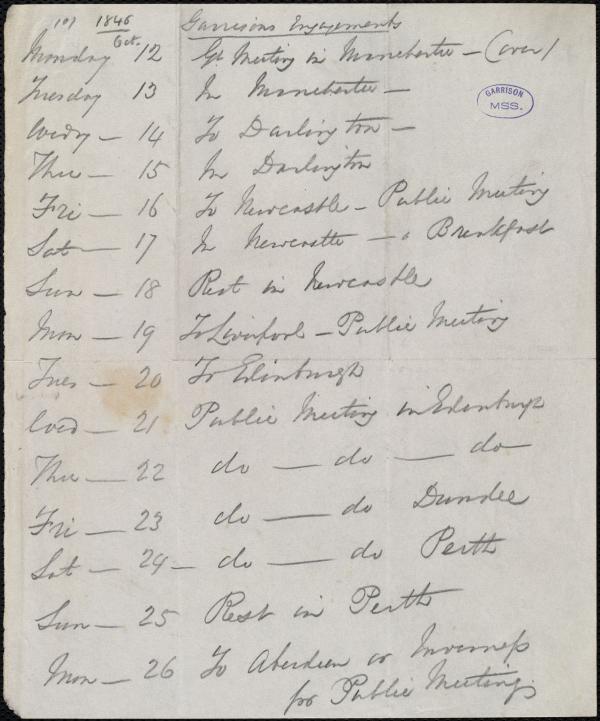 1846 Garrisons Engagements
Oct.
Monday 12 Gt Meeting in Manchester - (over)
Tuesday 13 In Manchester -
GARRISON
MSS.
Wedy - 14 To Darlington -
Thu - 15 In Darlington
Fri - 16 To Newcastle - Public Meeting
Sat - 17 In Newcastle - a Breakfast
Sun - 18 Rest in Newcastle
Mon - 19 To Liverpool - Public Meeting
Tues - 20 To Edinburgh
Wed - 21 Public Meeting in Edinburgh
Thu - 22 do - do - do
Fri - 23 do - do Dundee
Sat - 24 - do - do Perth
Sun - 25 Rest in Perth
Mon - 26 To Aberdeen or Inverness
for Public Meeting